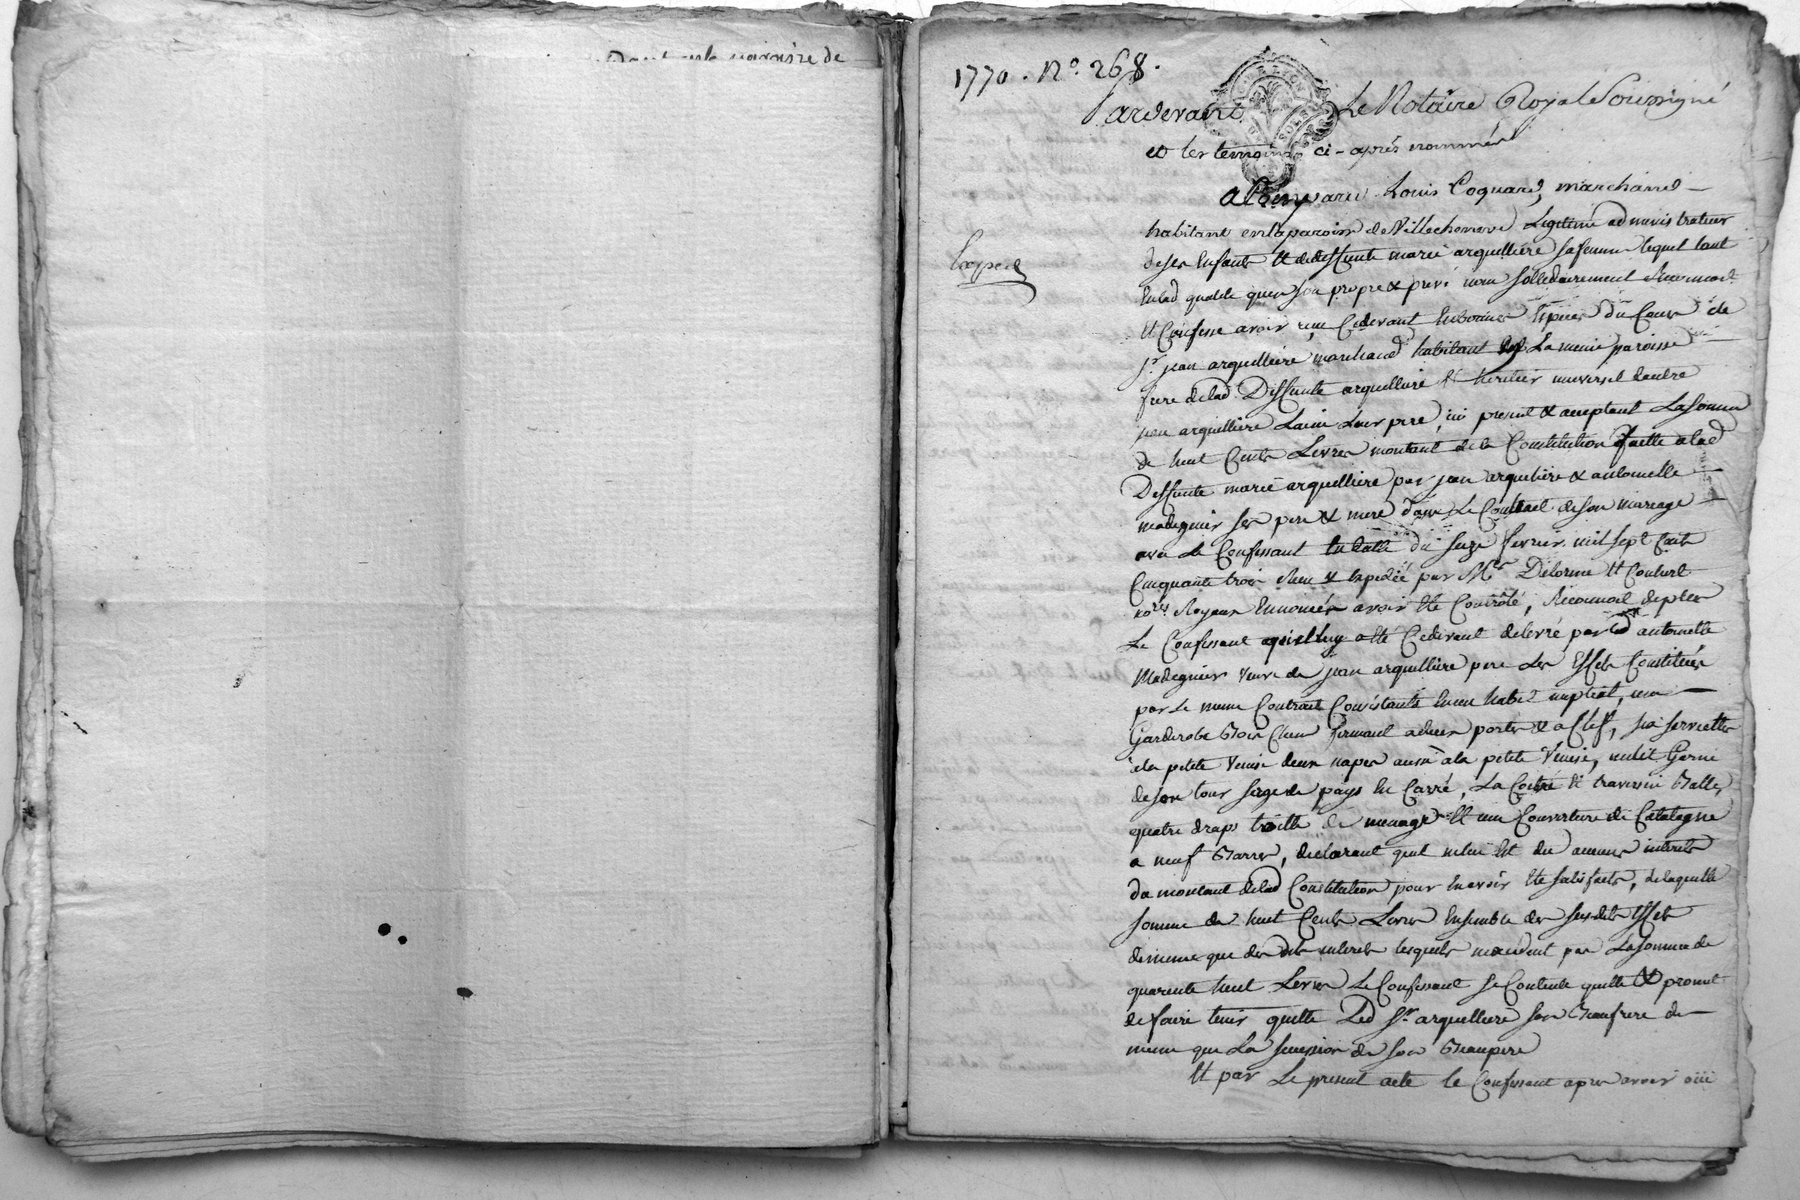 paroisse de
1770. N°. 268.
Pardevant Le Notaire Royal Soussigné
et les temoins ci-après nommés
a Comparu Louis Coquard, marchand
habitant en la paroisse de Villechenove Legitime administrateur
de ses Enfants Et de deffunte marie arquilliere sa femme lequel tant
En lad qualité quen son propre & privé nom sollidairement Reconnoit
Et Confesse avoir reçu Cidevant En bonnes Especes du Cours de
Sr. jean arquilliere marchand habitant La meme paroisse
frere de lad. Deffunte arquilliere & heritier universel dautre
jean arquilliere Laine Leur pere, ici present & acceptant La somme
de huit Cents Livres montant de la Constitution faitte a lad
Deffunte marie arquilliere par jean arquilliere & antoinette
madignier ses pere & mere dans Le Contract de son mariage
avec Le Confessant En datte du seize fevrier mil sept Cents
Cinquante trois Reçu & Expedié par Mes Delorme Et Couturt
nores Royaux Ennoncés avoir Eté Controlé, Reconnoit de plus
Le Confessant quil luy a été Cidevant delivré par lad antoinette
Madignier veuve de jean arquilliere pere Les Effets Constitués
par Le meme Contract Consistants En un habit nuptial, un
Garderobe Bois Chene fermant a deux portes & a Clef, six serviettes
a la petite Venise deux napes aussi a la petite Venise, un lit Garni
de son tour serge de pays En Carré, La Coitre Et traversin Balle,
quatre draps toille de menage Et une Couverture de Catalogne
a neuf Barres, declarant quil ne lui Est du aucuns interets
du montant de lad Constitution pour En avoir Eté satisfait, de laquelle
somme de huit Cents Livres Ensemble des susdits Effets
de meme que des dits interets lesquels nexcedent pas La somme de
quarente huit Livres Le Confessant se Contente quitte & promet
de faire tenir quitte Led Sr. arquilliere son Beaufrere de
meme que La succession de son Beaupere
Et par Le present acte le Confessant apres avoir oui